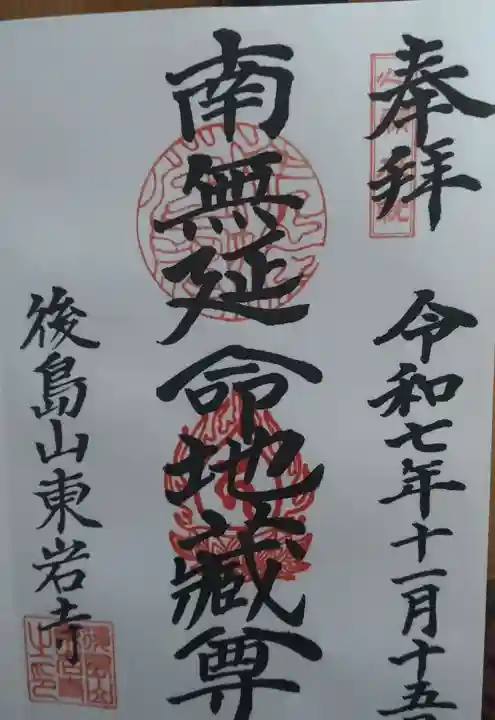 奉拝
令和七年十一月十五
南無延命地蔵尊
後島山東岩寺